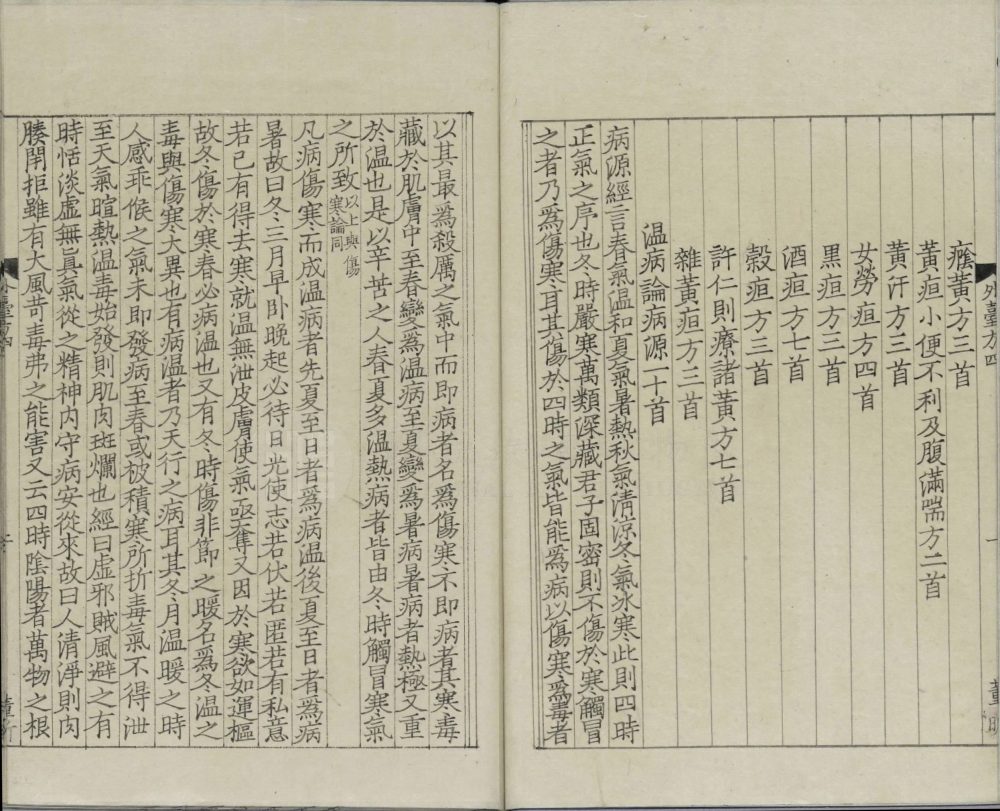 外臺方四
癊黃方三首
黃疸小便不利及腹滿喘方二首
黃汗方三首
女勞疸方四首
黑疸方三首
酒疸方七首
穀疸方三首
許仁則療諸黃方七首
雜黃疸方三首
温病論病源一十首
病源經言春氣温和夏氣暑熱秋氣清涼冬氣冰寒此則四時
正氣之序也冬時嚴寒萬類深藏君子固密則不傷於寒觸冒
之者乃爲傷寒耳其傷於四時之氣皆能爲病以傷寒爲毒者
以其最爲殺厲之氣中而即病者名爲傷寒不即病者其寒毒
藏於肌膚中至春變爲温病至夏變爲暑病暑病者熱極又重
於温也是以辛苦之人春夏多温熱病者皆由冬時觸冒寒氣
之所致以上與傷寒論同
凡病傷寒而成温病者先夏至日者爲病温後夏至日者爲病
暑故曰冬三月早卧晚起必待日光使志若伏若匿若有私意
若已有得去寒就温無泄皮膚使氣亟奪又因於寒欲如運樞
故冬傷於寒春必病温也又有冬時傷非節之暖名爲冬温之
毒與傷寒大異也有病温者乃天行之病耳其冬月温暖之時
人感乖候之氣未即發病至春或被積寒所折毒氣不得泄
至天氣暄熱温毒始發則肌肉斑爛也經曰虛邪賊風避之有
時恬淡虛無眞氣從之精神内守病安從來故曰人清淨則肉
腠閉拒雖有大風苛毒弗之能害又云四時陰陽者萬物之根